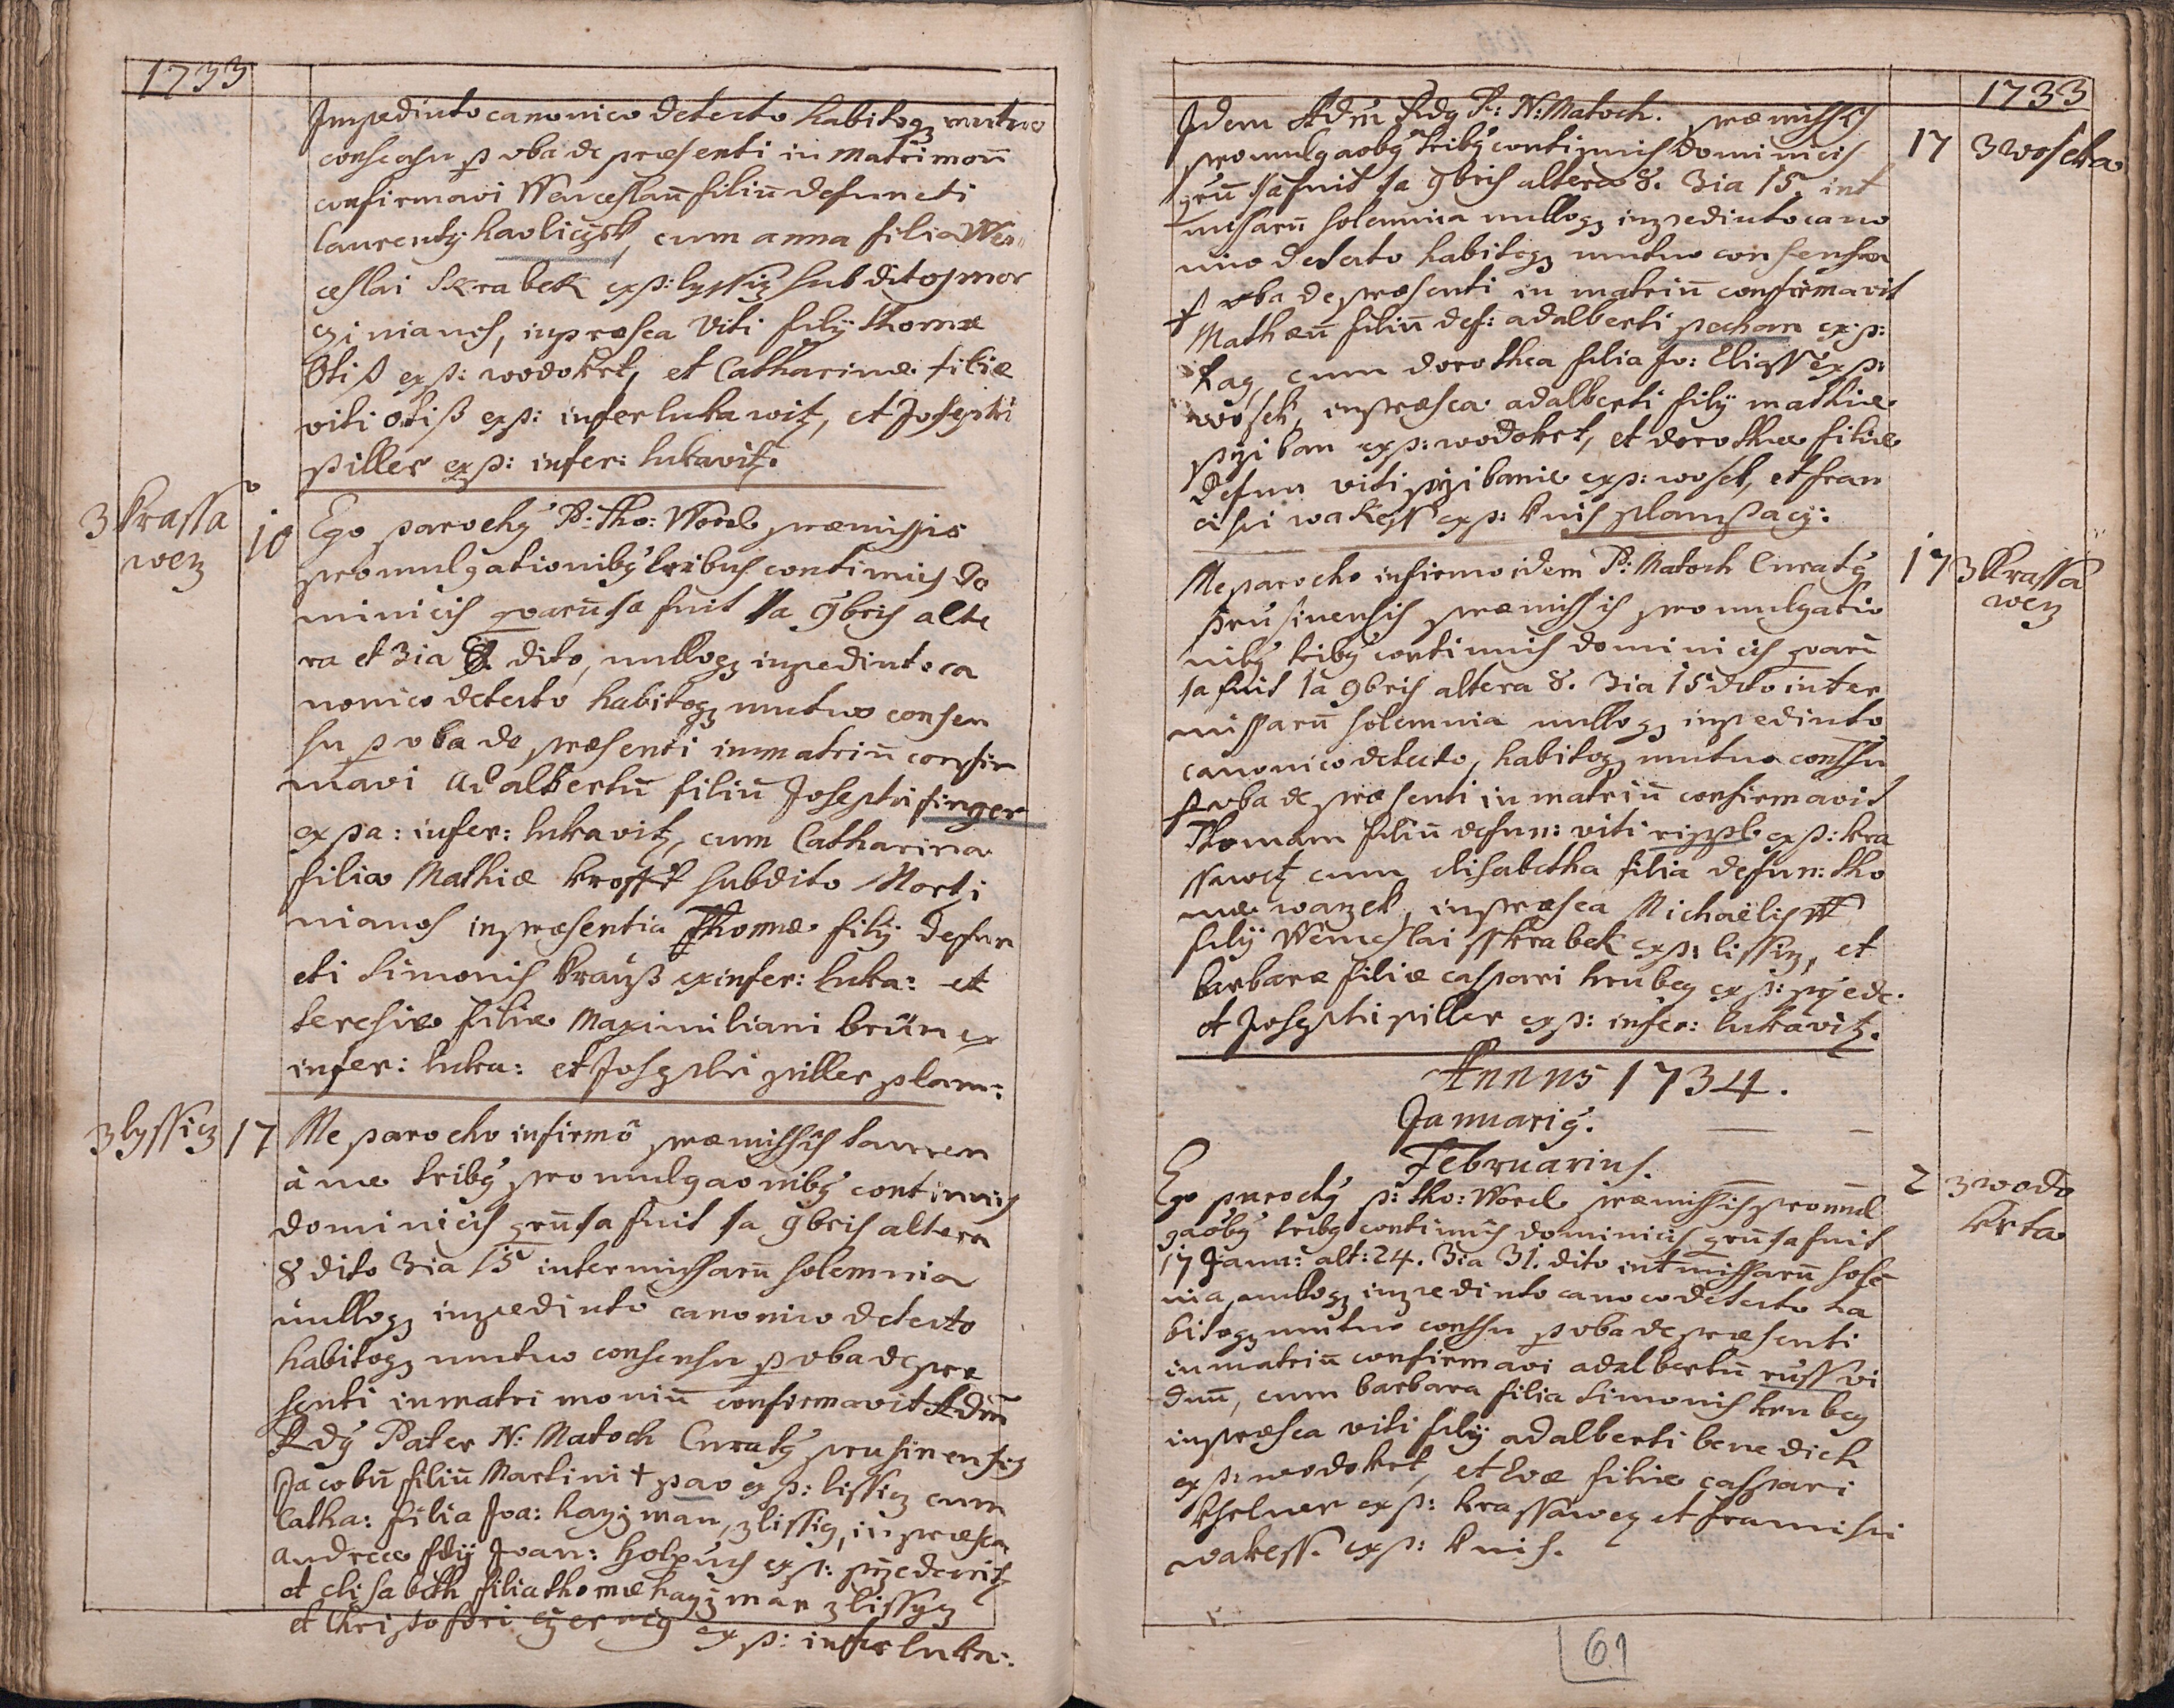 1733
Impedinto canonico detecto habitoq3 mutuo
consensu p vba de præsenti in Matrimoũ
confirmavi Wenceslaũ filiũ defuncti
Laurentÿ havliczek, cum anna filia Wen
ceslai Skrabek ex p: lyssiz subditos mor
zinianos, inpræsea Viti filÿ thomæ
Otiß ex p: wodokrt, et Catharinæ filiæ
viti otiß ex p: infer lukawitz, et Josephi
piller ex p: infer: lukavitz.
3 krassa
wez
10
Ego parochÿ P: Tho: Worel præmissis
promulgationibꝯ tribus continuis do
minicis qvarũ 1a fuit 1a 9bris alte
ra et 3ia 8. dito, nulloq3 inpedinto ca
nonico detecto habitoq3 mutuo consen
su p vba de præsenti in matriũ confir
mavi adalbertũ filiũ Josephi finger
ex pa: infer: lukavitz, cum Catharina
filia Mathiæ krofft subdito Morzi
nianos inpræsentia Thomæ filÿ defun
cti Simonis krauß ex infer: luka: et
teresiæ filiæ Maximiliani brün ex
infer: luka: et Josephi piller plam:
3 lyssiz 17
Me parocho infirmo præmissis tamen
à me tribꝯ promulgaonibꝯ continuis
dominicis qrũ 1a fuit 1a 9bris altera
8 dito 3ia 15 inter missarũ solemnia
nulloq3 inpedinto canonico detecto
habitoq3 mutuo consensu p vba de præ
senti in matrimoniũ confirmavit Adm̃
Rdꝯ Pater N: Matoch Curatꝯ prusinensis
Jacobũ filiũ Martini † pav ex p: lissiz cum
Catha: filia Joa: hayzman, z lissiz, in præsea
Andreæ filÿ Joan: holpuch ex p: przedenitz
et elisabeth filia thomæ hayzman z lissyz
et Christofori czerny ex p: infer luka:
1733
Idem Adm̃ Rdꝯ P: N: Matoch. præmissis
promulgaobꝯ tribꝯ continuis dominicis
qrũ 1a fuit 1a 9bris altera 8. 3ia 15. int
missarũ solemnia nulloq3 inpedinto cano
nico detecto habitoq3 mutuo consensu
p vba de præsenti in matriũ confirmavit
Mathæũ filiũ def: adalberti pechan ex p:
tag, cum dorothea filia Jo: Eliass ex p:
wosek, inpræsea adalberti filÿ mathiæ
przi ban ex p: wodokrt, et dorotheæ filiæ
defun viti przi baniæ ex p: wosek, et fran
cisci wakess ex p: knis plampaczi:
17 3 woseka
Me parocho infirmo idem P: Matoch Curatꝯ
prusinensis præmissis promulgatio
nibꝯ tribꝯ continuis dominicis qvarũ
1a fuit 1a 9bris altera 8. 3ia 15 dito inter
missarũ solemnia nulloq3 inpedinto
canonico detecto, habitoq3 mutuo conssu
p vba de præsenti in matriũ confirmavit
Thomam filiũ defun: viti rizpl ex p: kra
ssawetz cum elisabetha filia defun: tho
mæ wanzek, inpræsea Michaëlis
filÿ Wenceslai sskrabek ex p: lissiz, et
barbaræ filiæ caspari hrubey ex p: przede.
et Josephi piller ex p: infer: lukavitz.
17 3 krassa
wez
Annus 1734.
Januariꝯ.
Februarius.
Ego parochꝯ p: tho: Worel præmissis promul
gaobꝯ tribꝯ continuis dominicis qrũ 1a fuit
17 Janu: alt: 24. 3ia 31. dito int missarũ sole
nia, nulloq3 inpedinto canoco detecto ha
bitoq3 mutuo conssu p vba de præsenti
in matriũ confirmavi adalbertũ russ vi
duũ, cum barbara filia Simonis hrubey
inpræsea viti filÿ adalberti benedick
ex p: wodokrt, et Evæ filiæ caspari
kselner ex p: krassawez et francisci
wakess. ex p: knis.
2 3 wodo
krta
61